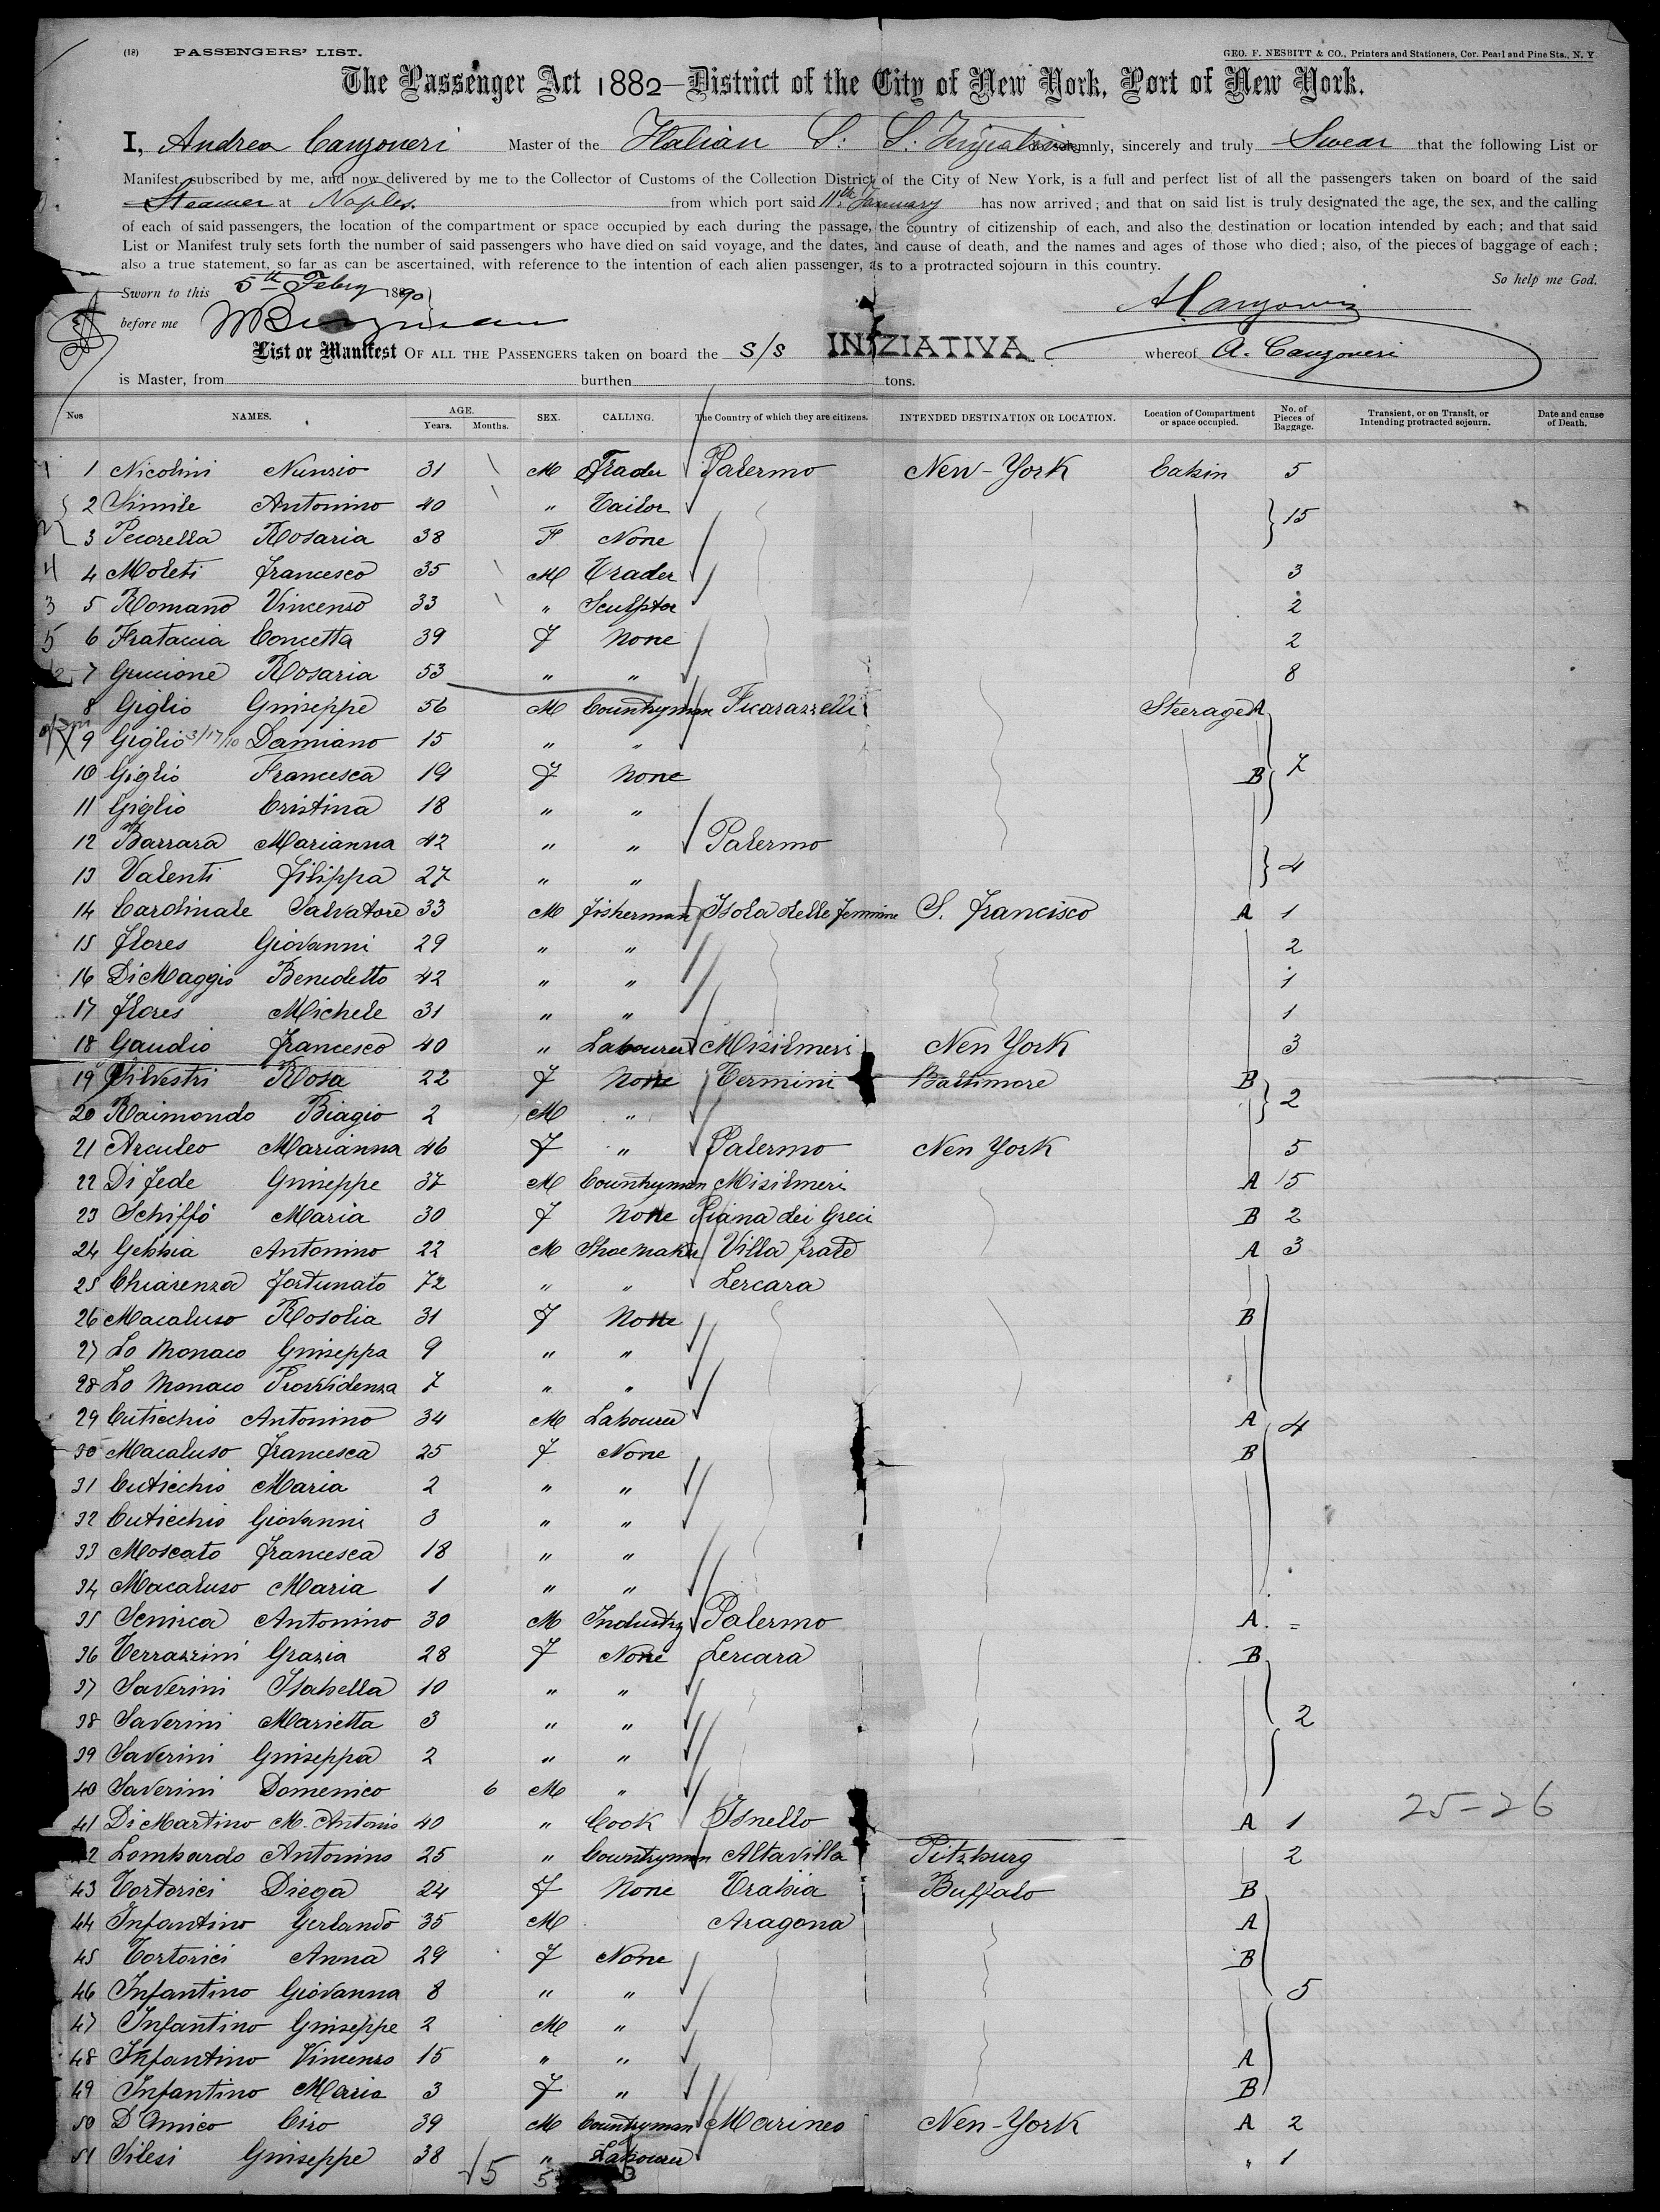 (18) PASSENGERS' LIST.
GEO. F. NESBITT & CO., Printers and Stationers, Cor. Pearl and Pine Sts., N. Y
The Passenger Act 1882—District of the City of New York, Port of New York.
I, Andrea Canzoneri Master of the Italian S. S. solemnly, sincerely and truly Swear that the following List or
Manifest subscribed by me, and now delivered by me to the Collector of Customs of the Collection District of the City of New York, is a full and perfect list of all the passengers taken on board of the said
Steamer at Naples from which port said 11th January has now arrived; and that on said list is truly designated the age, the sex, and the calling
of each of said passengers, the location of the compartment or space occupied by each during the passage, the country of citizenship of each, and also the destination or location intended by each; and that said
List or Manifest truly sets forth the number of said passengers who have died on said voyage, and the dates, and cause of death, and the names and ages of those who died; also, of the pieces of baggage of each;
also a true statement, so far as can be ascertained, with reference to the intention of each alien passenger, as to a protracted sojourn in this country.
So help me God.
Sworn to this 5th Febry 1890
before me
List or Manifest OF ALL THE PASSENGERS taken on board the S/S INIZIATIVA whereof A. Canzoneri
is Master, from burthen tons.
Nos NAMES. AGE. Years. Months. SEX. CALLING. The Country of which they are citizens. INTENDED DESTINATION OR LOCATION. Location of Compartment or space occupied. No. of Pieces of Baggage. Transient, or on Transit, or Intending protracted sojourn. Date and cause of Death.
1 1 Nicolini Nunzio 31 M Trader Palermo New-York Cabin 5
2 Simile Antonino 40 " Tailor
15
2 3 Pecorella Rosaria 38 F None
4 4 Moleti Francesco 35 M Trader 3
3 5 Romano Vincenso 33 " Sculptor 2
5 6 Frataccia Concetta 39 F None 2
7 Guccione Rosaria 53 " " 8
8 Giglio Guiseppe 56 M Countryman Ficarazzelli Steerage A
9 Giglio 3/17/10 Damiano 15 " "
10 Giglio Francesca 19 F None B 7
11 Giglio Cristina 18 " "
12 Barrara Marianna 42 " " Palermo
13 Valenti Filippa 27 " " 4
14 Cardinale Salvatore 33 M Fisherman Isola delle Femmine S. Francisco A 1
15 Flores Giovanni 29 " " 2
16 DiMaggio Benedetto 42 " " 1
17 Flores Michele 31 " " 1
18 Gaudio Francesco 40 " Labourer Misilmeri New York 3
19 Silvestri Rosa 22 F None Termini Baltimore B
20 Raimondo Biagio 2 M " 2
21 Arculeo Marianna 46 F " Palermo New York 5
22 Di Fede Guiseppe 37 M Countryman Misilmeri A 15
23 Schiffò Maria 30 F None Piana dei Greci B 2
24 Gebbia Antonino 22 M Shoemaker Villa frate A 3
25 Chiarenza Fortunato 72 " " Lercara
26 Macaluso Rosolia 31 F None B
27 Lo Monaco Guiseppa 9 " "
28 Lo Monaco Provvidenza 7 " "
29 Cuticchio Antonino 34 M Labourer A 4
30 Macaluso Francesca 25 F None B
31 Cuticchio Maria 2 " "
32 Cuticchio Giovanni 3 " "
33 Moscato Francesca 18 " "
34 Macaluso Maria 1 " "
35 Antonino 30 M Industry Palermo A =
36 Terrazzini Grazia 28 F None Lercara B
37 Saverini Isabella 10 " "
38 Saverini Marietta 3 " " 2
39 Saverini Guiseppa 2 " "
40 Saverini Domenico 6 M "
41 Di Martino M. Antonio 40 " Cook Isnello A 1 25-26
2 Lombardo Antonino 25 " Countryman Altavilla Pitzburg 2
43 Tortorici Diega 24 F None Trabia Buffalo B
44 Infantino Gerlando 35 M Aragona A
45 Tortorici Anna 29 F None B
46 Infantino Giovanna 8 " " 5
47 Infantino Guiseppe 2 M "
48 Infantino Vincenso 15 " " A
49 Infantino Maria 3 F " B
50 D'Amico Ciro 39 M Countryman Marineo New-York A 2
51 Silesi Guiseppe 38 " Labourer " 1